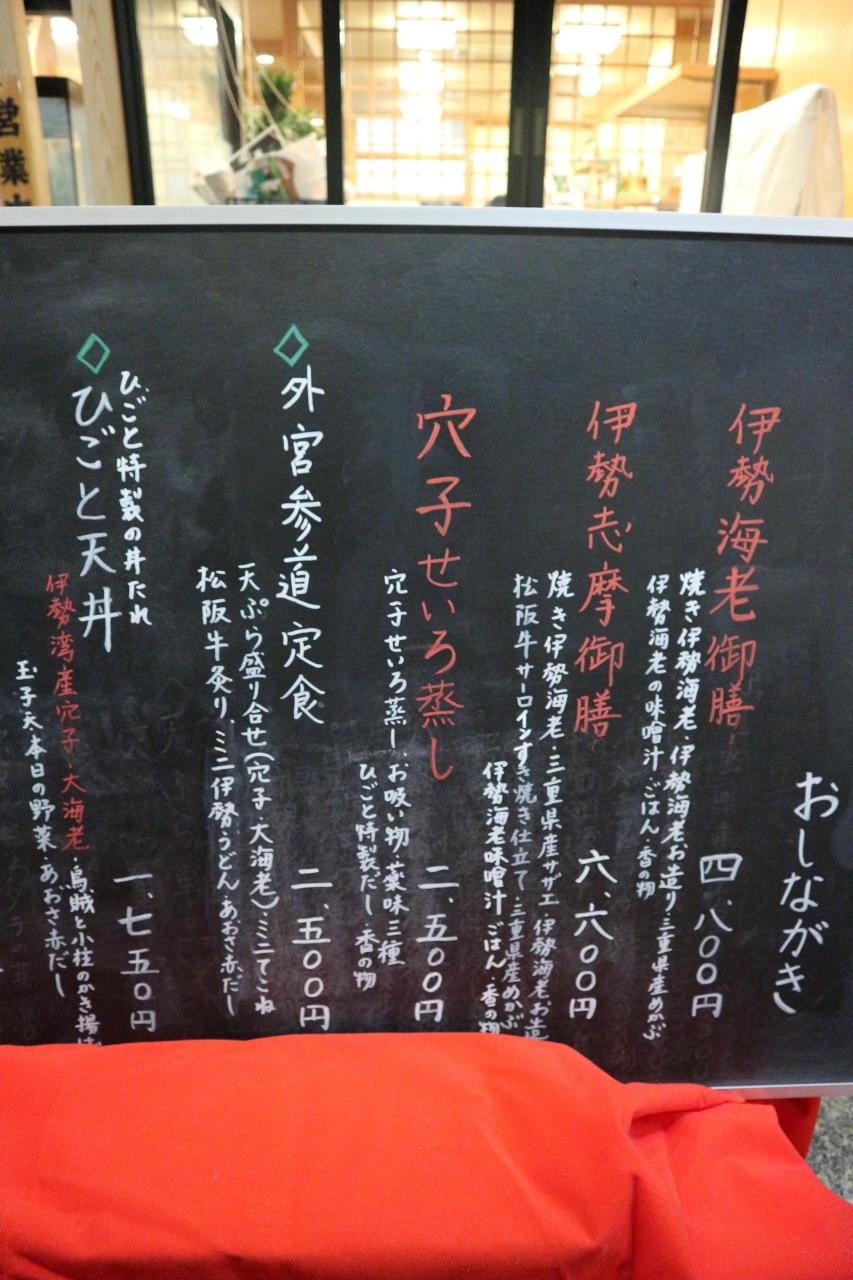 おしながき
伊勢海老御膳
焼き伊勢海老・伊勢海老お造り・三重県産めかぶ
伊勢海老の味噌汁・ごはん・香の物
四、八〇〇円
伊勢志摩御膳
焼き伊勢海老・三重県産サザエ 伊勢海老お造
松阪牛サーロインすき焼き仕立て・三重県産めかぶ
伊勢海老味噌汁・ごはん・香の物
六、六〇〇円
穴子せいろ蒸し
穴子せいろ蒸し・お吸い物・薬味三種
ひごと特製だし・香の物
二、五〇〇円
◇外宮参道定食
天ぷら盛り合せ(穴子・大海老)・ミニてこね
松阪牛炙り、ミニ伊勢うどん、あおさ赤だし
二、五〇〇円
ひごと特製の丼たれ
◇ひごと天丼
伊勢湾産穴子・大海老・烏賊と小柱のかき揚げ
玉子天・本日の野菜・あおさ赤だし
一、七五〇円
営業